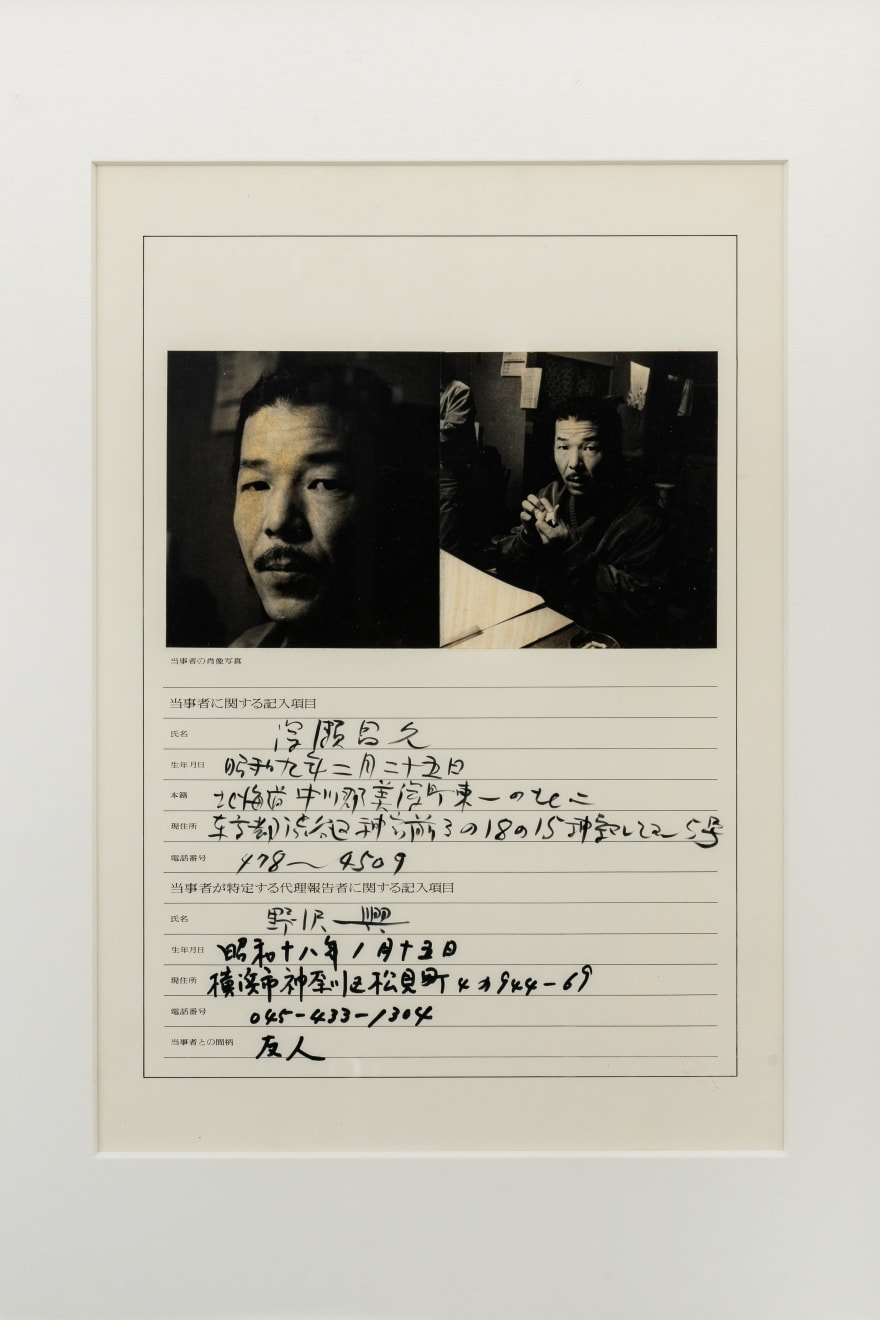 当事者の肖像写真
当事者に関する記入項目
氏名 深瀬昌久
生年月日 昭和九年二月二十五日
本籍 北海道中川郡美深町東一の北二
現住所 東京都渋谷区神宮前3の18の15 5号
電話番号 478〜4509
当事者が特定する代理報告者に関する記入項目
氏名 野沢一興
生年月日 昭和十八年1月十五日
現住所 横浜市神奈川区松見町4ノ944-69
電話番号 045-433-1304
当事者との間柄 友人